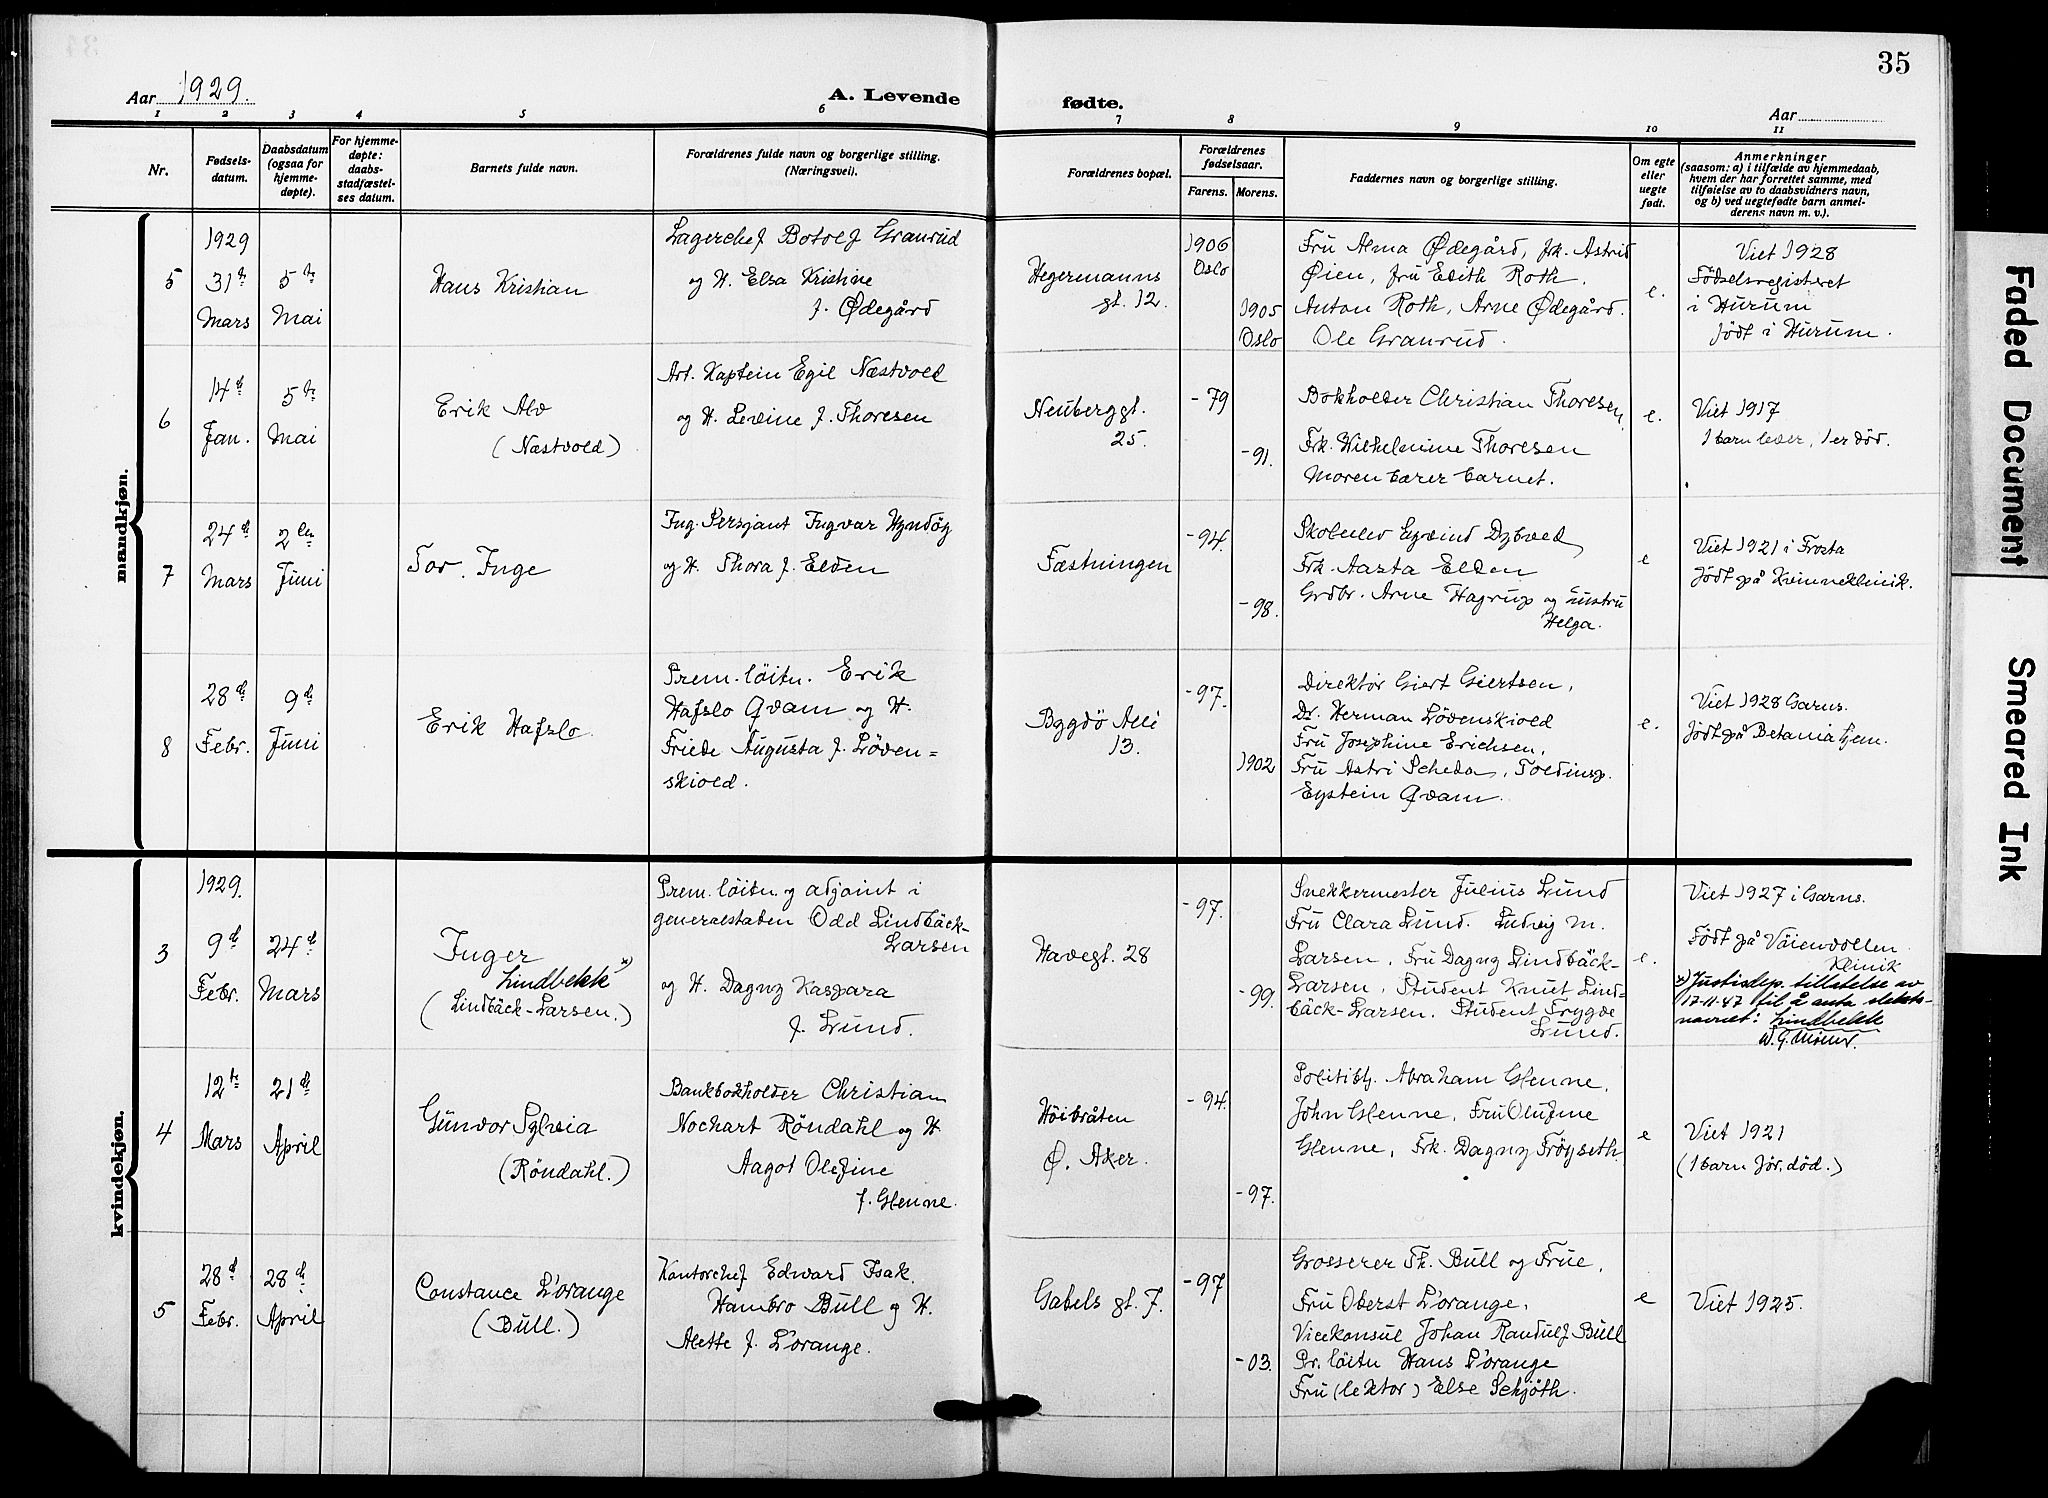 35
Aar 1929.
A. Levende
fødte.
Aar
1 2 3 4 5 6 7 8 9 10 11
Nr.
Fødsels-
datum.
Daabsdatum
(ogsaa for
hjemme-
døpte).
For hjemme-
døpte:
daabs-
stadfæstel-
ses datum.
Barnets fulde navn.
Forældrenes fulde navn og borgerlige stilling.
(Næringsvei).
Forældrenes bopæl.
Forældrenes
fødselsaar.
Farens. Morens.
Faddernes navn og borgerlige stilling.
Om egte
eller
uegte
født.
Anmerkninger
(saasom: a) i tilfælde av hjemmedaab,
hvem der har forrettet samme, med
tilføielse av to daabsvidners navn,
og b) ved uegtefødte barn anmel-
derens navn m. v.).
mandkjøn.
5
1929
31te
Mars
5te
Mai
Hans Kristian
Lagerchef Botolf Granrud
og H. Elsa Kristine
f. Ødegård
Hegermanns
gt. 12.
1906
Oslo
1905
Oslo
Fru Alma Ødegård, frk. Astrid
Øien, fru Edith Roth.
Anton Roth, Arne Ødegård.
Ole Granrud.
e.
Viet 1928
Fødselsregistret
i Hurum
født i Hurum.
6
14de
Jan.
5te
Mai
Erik Alv
(Næstvold)
Art. Kaptein Egil Næstvold
og H. Levine f. Thoresen
Neuberggt.
25.
-79
-91.
Bokholder Christian Thoresen
Frk. Wilhelmine Thoresen
Moren bærer barnet.
e.
Viet 1917
1 barn lever, 1 er død.
7
24de
Mars
2den
Juni
Tor. Inge
Ing. Persjant Ingvar Hyndøy
og H. Thora f. Elden
Fæstningen
-94.
-98.
Skoleelev Eyvind Dybvad
Frk. Aasta Elden
Grdbr. Arne Hagrup og hustru
Helga.
e
Viet 1921 i Frosta
født på Kvinneklinik.
8
28de
Febr.
9de
Juni
Erik Hafslo.
Prem. löitn. Erik
Hafslo Qvam og H.
Friede Augusta f. Løven=
skiold.
Bygdö Allé
13.
-97.
1902
Direktör Giert Giertsen,
Dr. Herman Lövenskiold
Fru Josephine Erichsen,
Fru Astri Scheda, Toldinsp.
Eystein Qvam.
e.
Viet 1928 Garns.
født på Betania hjem.
kvindekjøn.
3
1929.
9de
Febr.
24de
Mars
Inger
Lindbekk *)
(Lindbäck-Larsen.)
Prem. löitn. og adjoint i
generalstaben Odd Lindbäck-
Larsen
og H. Dagny Kaspara
f. Lund.
Havegt. 28
-97.
-99.
Snekkermester Julius Lund
Fru Clara Lund. Ludvig M.
Larsen, Fru Dagny Lindbäck-
Larsen, Student Knut Lind=
bäck-Larsen. Student Trygve
Lund.
e.
Viet 1927 i Garns.
Født på Vöienvollen
Klinik
*) Justisdep. tillatelse av
17-11-47 til å anta slekts-
navnet: Lindbekk
4
12te
Mars
21de
April
Gunvor Sylvia
(Röndahl.)
Bankbokholder Christian
Nochart Röndahl og H
Aagot Olefine
f. Glenne.
Höibråten
Ø. Aker.
-94.
-97.
Politibtj. Abraham Glenne,
John Glenne, Fru Olufine
Glenne, Frk. Dagny Fröyseth.
e
Viet 1921
(1 barn för, död.)
5
28de
Febr.
28de
April
Constance L'orange
(Bull.)
Kontorchef Edward Isak.
Hambro Bull og H.
Alette f. L'orange.
Gabels gt. 7.
-97
-03.
Grosserer Th. Bull og Frue,
Fru Oberst L'orange,
Vicekonsul Johan Randulf Bull
Pr. löitn Hans L'orange
Fru (lektor) Else Schjöth.
e
Viet 1925.
Faded Document
Smeared Ink